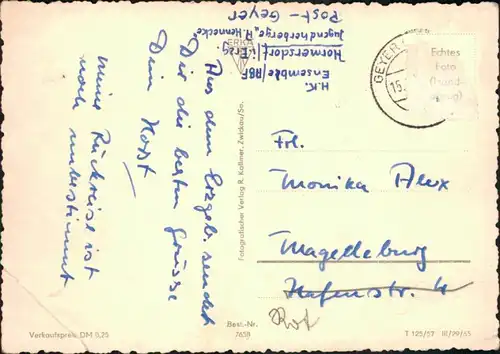 Aus dem Erzgeb. sendet
Dir die besten Grüsse
Dein Horst
meine Rückreise ist
noch unbestimmt
H.K.
Ensemble/RBF
Hormersdorf/Erzg
Jugendherberge "A. Hennecke"
Post-Geyer
ERKA
GEYER
15.
Echtes
Foto
(Hand-
abzug)
Frl.
Monika Alex
Magedeburg
Hafenstr. 4
Rot
Fotografischer Verlag R. Kallmer, Zwickau/Sa.
Verkaufspreis: DM 0,25
Best.-Nr.
7658
T 125/57 III/29/65